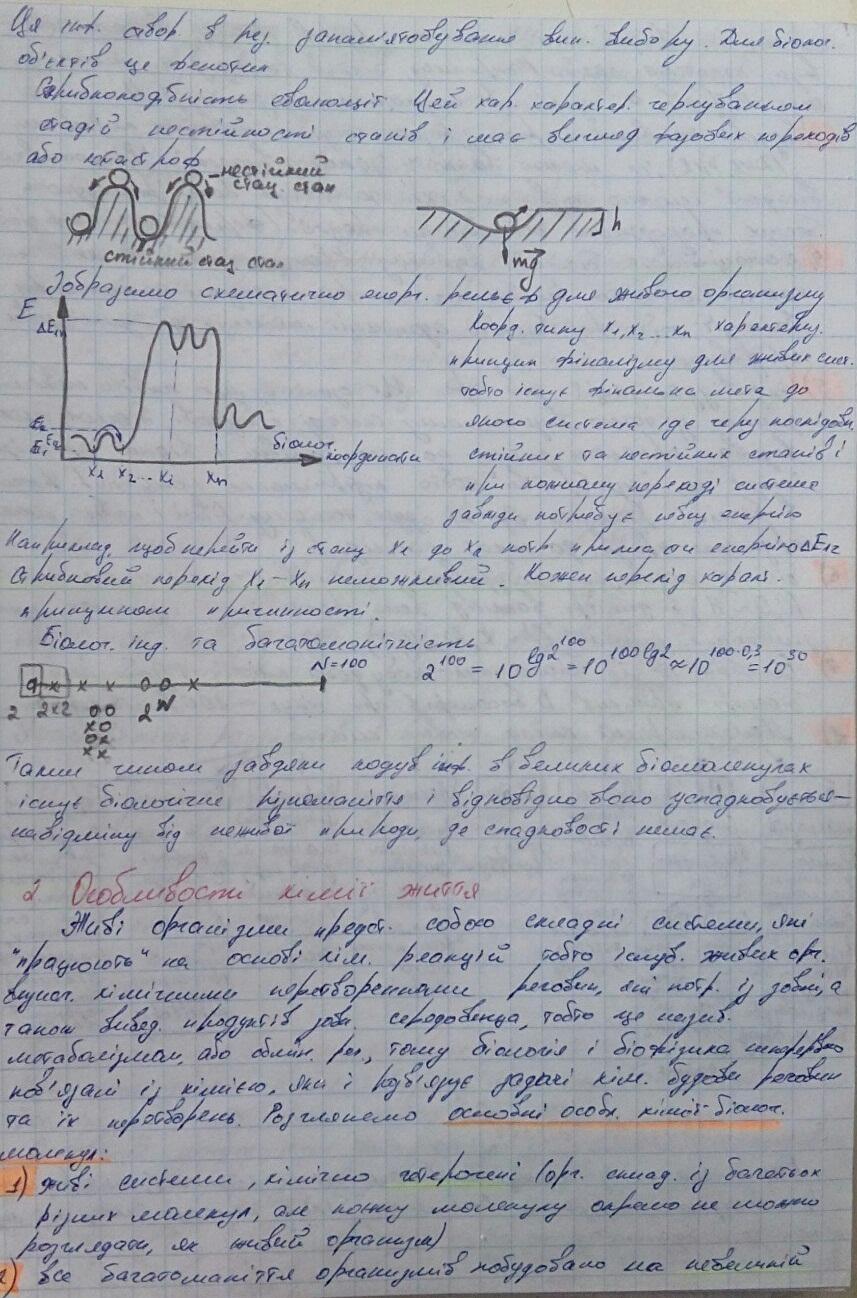 Ця інф. створ. в рез. запам'ятовування вип. вибору. Для біолог.
об'єктів це генотип
Стрибкоподібність еволюції. Цей хар. характер. чергуванням
стадій нестійкості станів і має вигляд фазових переходів
або катастроф
нестійкий
стац. стан
стійкий стац стан
h
mg
Зобразимо схематично енерг. рельєф для живого організму
E
ΔE
E₂
E₁
x₁ x₂ ... xᵢ xₙ
біолог.
координати
Коорд. типу x₁, x₂ ... xₙ характериз.
принцип фіналізму для живих сист.
тобто існує фінальна мета до
якого система іде через послідовн.
стійких та нестійких станів і
при кожному переході система
завжди потребує певну енергію
Наприклад, щоб перейти із стану x₁ до x₂ потр. прикласти енергію ΔE₁₂
Стрибковий перехід x₁ – xₙ неможливий. Кожен перехід характ.
принципом причинності.
Біолог. інф. та багатоманітність
N=100
2¹⁰⁰ = 10^lg2¹⁰⁰ = 10^100lg2 ≈ 10^100·0,3 = 10³⁰
2 2×2 2ᴺ
оо
хо
ох
хх
Таким чином завдяки подув інф. в великих біомолекулах
існує біологічне різноманіття і відповідно воно успадковується –
на відміну від неживої природи, де спадковості немає.
2 Особливості хімії життя
Живі організми предст. собою складні системи, які
"працюють" на основі хім. реакцій тобто існув. живих орг.
визнач. хімічними перетвореннями речовин, які потр. із зовні, а
також вивед. продуктів зовн. середовища, тобто це назив.
метаболізмом, або обмін. реч., тому біологія і біофізика неперервно
пов'язані із хімією, яка і розв'язує задачі хім. будови речовин
та їх перетворень. Розглянемо основні особл. хімії біолог.
молекул:
1) живі системи, хімічно гетерогені (орг. склад. із багатьох
різних молекул, але кожну молекулу окремо не можно
розглядати, як живий організм)
2) все багатоманіття організмів побудовано на невеликій